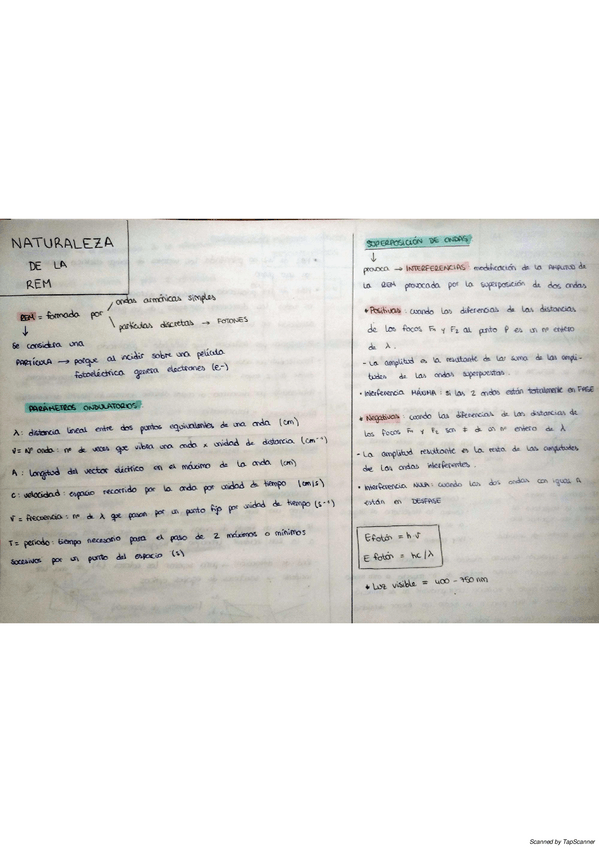 NATURALEZA
DE LA
REM
REM = formada por
ondas armónicas simples
partículas discretas → FOTONES
Se considera una
PARTÍCULA → porque al incidir sobre una película
fotoeléctrica genera electrones (e-)
PARÁMETROS ONDULATORIOS
λ: distancia lineal entre dos puntos equivalentes de una onda (cm)
V = Nº onda: nº de veces que vibra una onda x unidad de distancia (cm⁻¹)
A: longitud del vector eléctrico en el máximo de la onda (cm)
c: velocidad: espacio recorrido por la onda por unidad de tiempo (cm/s)
V = frecuencia: nº de λ que pasan por un punto fijo por unidad de tiempo (s⁻¹)
T = periodo: tiempo necesario para el paso de 2 máximos o mínimos
sucesivos por un punto del espacio (s)
SUPERPOSICIÓN DE ONDAS
provoca → INTERFERENCIAS modificación de la AMPLITUD de
la REM provocada por la superposición de dos ondas
* Positivas: cuando las diferencias de las distancias
de los focos F₁ y F₂ al punto P es un nº entero
de λ.
- La amplitud es la resultante de la suma de las ampli-
tudes de las ondas superpuestas.
· Interferencia MÁXIMA: si las 2 ondas están totalmente en FASE
* Negativas: cuando las diferencias de las distancias de
los focos F₁ y F₂ son ≠ de un nº entero de λ
- La amplitud resultante es la resta de las amplitudes
de las ondas interferentes.
· Interferencia NULA: cuando las dos ondas con igual A
están en DESFASE
E fotón = h ν
E fotón = hc/λ
* Luz visible = 400 - 750 nm
Scanned by TapScanner